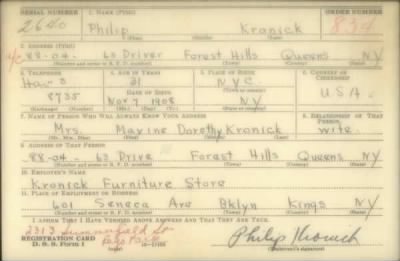 SERIAL NUMBER 1. NAME (Print) ORDER NUMBER
2640 Philip Kronick 834
(First) (Middle) (Last)
2. ADDRESS (Print)
88-04- 63 Driver Forest Hills Queens NY
(Number and street or R. F. D. number) (Town) (County) (State)
3. TELEPHONE 4. AGE IN YEARS 5. PLACE OF BIRTH 6. COUNTRY OF CITIZENSHIP
Hav 3 31 NYC
8735 DATE OF BIRTH U.S.A.
Nov 7 1908 NY
(Exchange) (Number) (Mo.) (Day) (Yr.) (State or country)
7. NAME OF PERSON WHO WILL ALWAYS KNOW YOUR ADDRESS 8. RELATIONSHIP OF THAT PERSON
Mrs. Maxine Dorothy Kronick wife
(Mr., Mrs., Miss) (First) (Middle) (Last)
9. ADDRESS OF THAT PERSON
88-04- 63 Drive Forest Hills Queens NY
(Number and street or R. F. D. number) (Town) (County) (State)
10. EMPLOYER'S NAME
Kronick Furniture Store
11. PLACE OF EMPLOYMENT OR BUSINESS
601 Seneca Ave Bklyn Kings NY
(Number and street or R. F. D. number) (Town) (County) (State)
I AFFIRM THAT I HAVE VERIFIED ABOVE ANSWERS AND THAT THEY ARE TRUE.
2313
REGISTRATION CARD
D. S. S. Form 1 16-17105 Philip Kronick
(Registrant's signature)